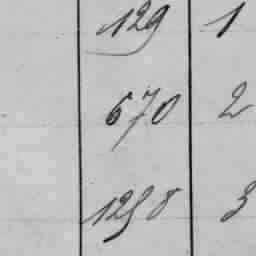 129 1
670 2
1258 3